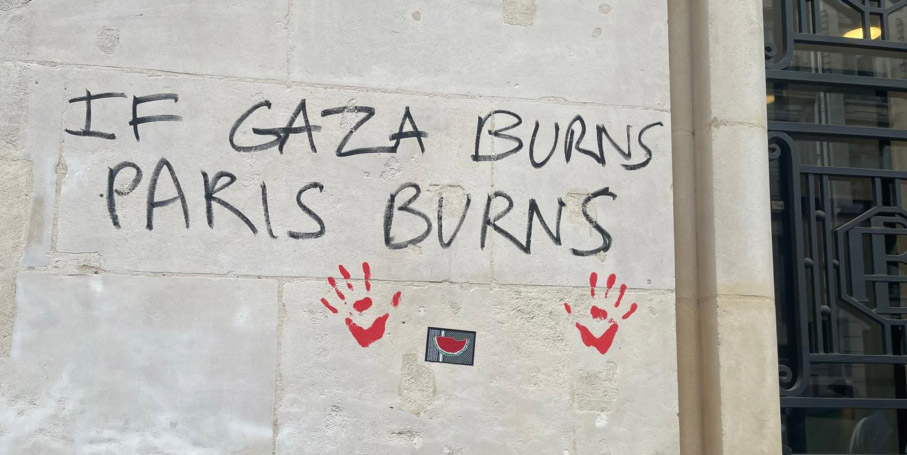 IF GAZA BURNS
PARIS BURNS